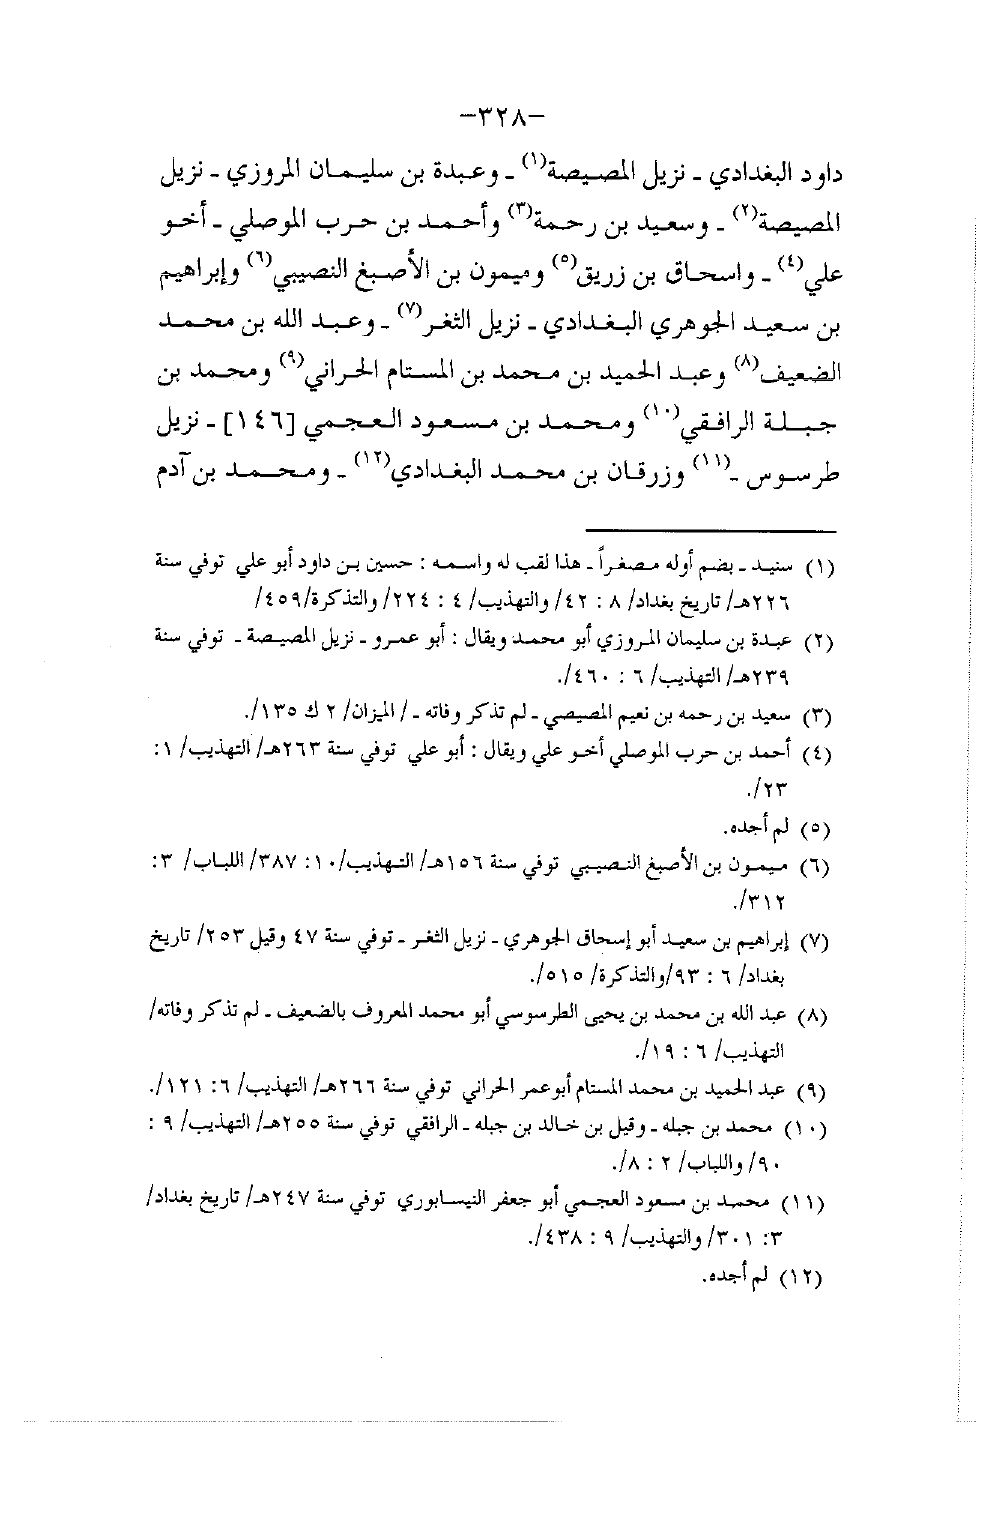 -٣٢٨-
داود البغدادي ـ نزيل المصيصة(١) ـ وعبدة بن سليمان المروزي ـ نزيل
المصيصة(٢) ـ وسعيد بن رحمة(٣) وأحمد بن حرب الموصلي ـ أخو
علي(٤) ـ واسحاق بن زريق(٥) وميمون بن الأصبغ النصيبي(٦) وإبراهيم
بن سعيد الجوهري البغدادي ـ نزيل الثغر(٧) ـ وعبد الله بن محمد
الضعيف(٨) وعبد الحميد بن محمد بن المستام الحراني(٩) ومحمد بن
جبلة الرافقي(١٠) ومحمد بن مسعود العجمي [١٤٦] ـ نزيل
طرسوس ـ(١١) وزرقان بن محمد البغدادي(١٢) ـ ومحمد بن آدم
(١) سنيد ـ بضم أوله مصغراً ـ هذا لقب له واسمه : حسين بن داود أبو علي توفي سنة
٢٢٦هـ/ تاريخ بغداد/ ٨ : ٤٢/ والتهذيب/ ٤ : ٢٢٤/ والتذكرة/٤٥٩/
(٢) عبدة بن سليمان المروزي أبو محمد ويقال : أبو عمرو ـ نزيل المصيصة ـ توفي سنة
٢٣٩هـ/ التهذيب/ ٦ : ٤٦٠/.
(٣) سعيد بن رحمه بن نعيم المصيصي ـ لم تذكر وفاته ـ / الميزان/ ٢ ك ١٣٥/.
(٤) أحمد بن حرب الموصلي أخو علي ويقال : أبو علي توفي سنة ٢٦٣هـ/ التهذيب/ ١:
٢٣/.
(٥) لم أجده.
(٦) ميمون بن الأصبغ النصيبي توفي سنة ١٥٦هـ/ التهذيب/١٠: ٣٨٧/ اللباب/ ٣:
٣١٢/.
(٧) إبراهيم بن سعيد أبو إسحاق الجوهري ـ نزيل الثغر ـ توفي سنة ٤٧ وقيل ٢٥٣/ تاريخ
بغداد/ ٦ : ٩٣/والتذكرة/ ٥١٥/.
(٨) عبد الله بن محمد بن يحيى الطرسوسي أبو محمد المعروف بالضعيف ـ لم تذكر وفاته/
التهذيب/ ٦ : ١٩/.
(٩) عبد الحميد بن محمد المستام أبوعمر الحراني توفي سنة ٢٦٦هـ/ التهذيب/ ٦: ١٢١/.
(١٠) محمد بن جبله ـ وقيل بن خالد بن جبله ـ الرافقي توفي سنة ٢٥٥هـ/ التهذيب/ ٩ :
٩٠/ واللباب/ ٢ : ٨/.
(١١) محمد بن مسعود العجمي أبو جعفر النيسابوري توفي سنة ٢٤٧هـ/ تاريخ بغداد/
٣: ٣٠١/ والتهذيب/ ٩ : ٤٣٨/.
(١٢) لم أجده.